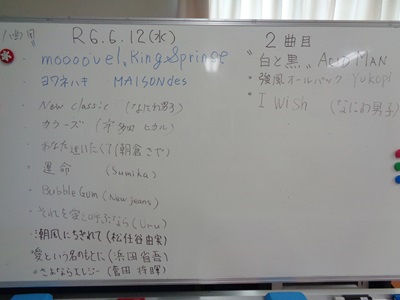 1曲目
R6.6.12(水)
・moooove!, King&Prince
・ヨワネハキ MAISONdes
・New classic (なにわ男子)
・カラーズ (宇多田ヒカル)
・あなたに逢いたくて(朝倉さや)
・運命 (Sumika)
・BubbleGum (New jeans)
・それを愛と呼ぶなら (Uru)
・潮風にちぎれて (松任谷由実)
・愛という名のもとに (浜田省吾)
・さよならエレジー (菅田将暉)
2曲目
"白と黒" ACIDMAN
"強風オールバック Yukopi
"I Wish (なにわ男子)